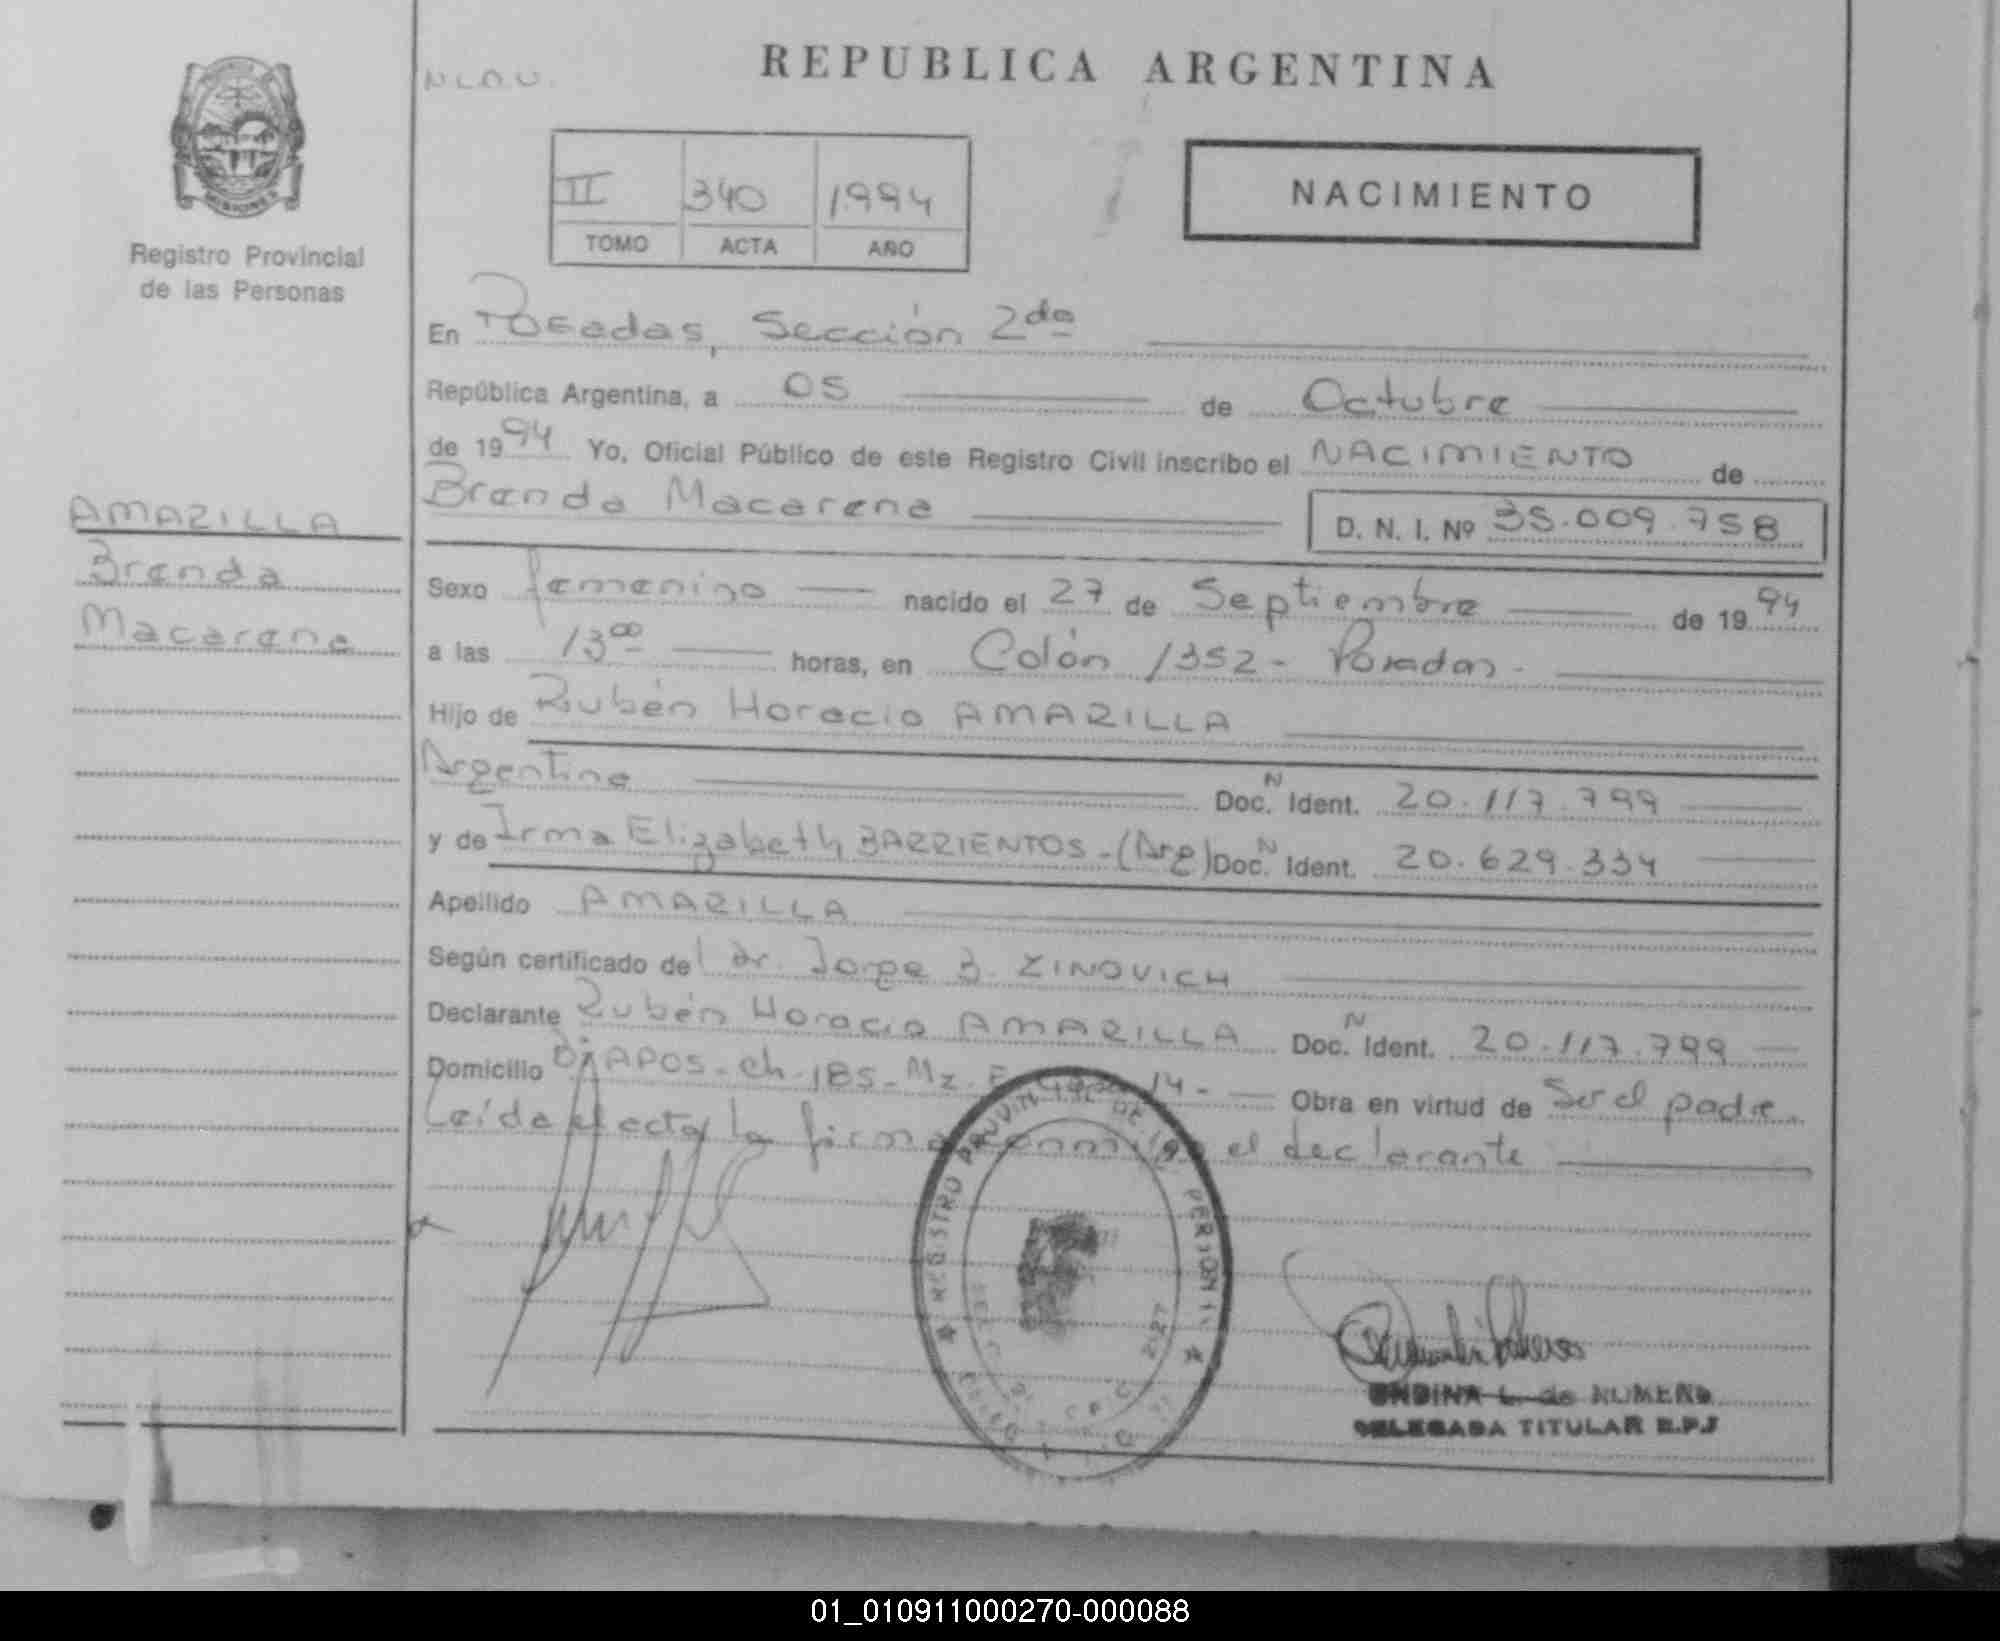 REPUBLICA ARGENTINA
NACIMIENTO
II 340 1994
TOMO ACTA AÑO
MISIONES
Registro Provincial
de las Personas
AMARILLA
Brenda
Macarena
En Posadas, Sección 2da
República Argentina, a 05 de Octubre
de 1994 Yo, Oficial Público de este Registro Civil inscribo el NACIMIENTO de
Brenda Macarena D. N. I. Nº 35.009.758
Sexo femenino nacido el 27 de Septiembre de 1994
a las 13 00 horas, en Colón 1352 - Posadas -
Hijo de Rubén Horacio AMARILLA
Argentina Doc. N Ident. 20.117.799
y de Irma Elizabeth BARRIENTOS - (Arg) Doc. N Ident. 20.629.334
Apellido AMARILLA
Según certificado del Dr. Jorge B. ZINOVICH
Declarante Rubén Horacio AMARILLA Doc. N Ident. 20.117.799
Domicilio APOS - Ch - 185 - Mz. E 14 - Obra en virtud de Ser el padre.
Leída el acta, la firma conmigo el declarante
REGISTRO PROVINCIAL DE PERSONAS
ONDINA L. de ROMERO
DELEGADA TITULAR R.P.J
01_010911000270-000088